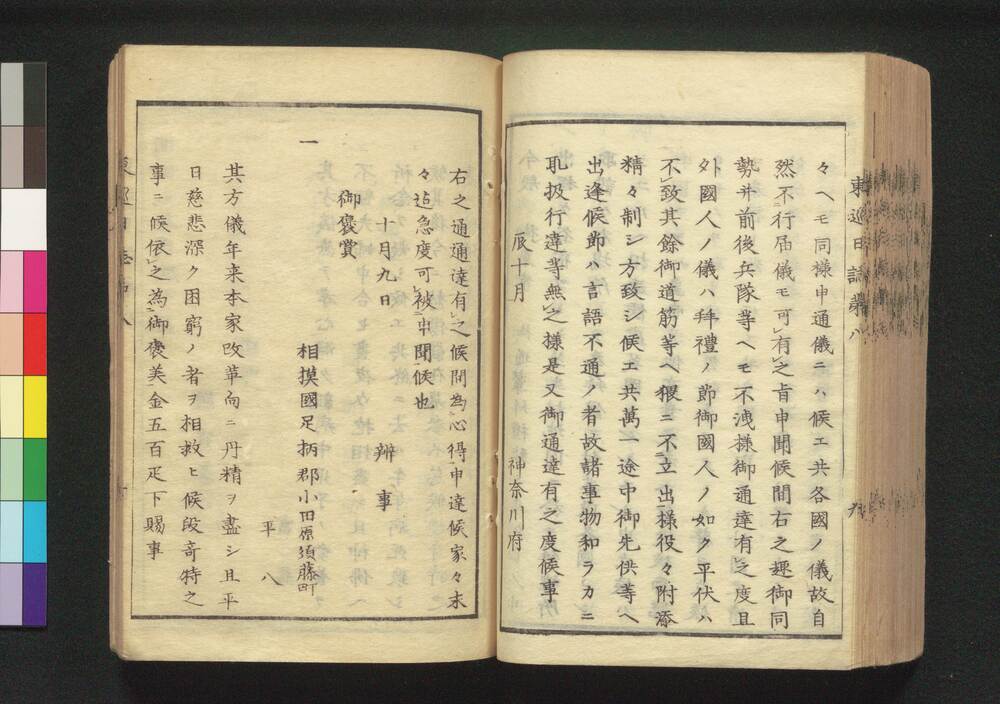 東巡日誌第八
九
々ヘモ同様申通儀ニハ候エ共各國ノ儀故自
然不行届儀モ可有之旨申聞候間右之趣御同
勢并前後兵隊等ヘモ不洩様御通達有之度且
外國人ノ儀ハ拜禮ノ節御國人ノ如ク平伏ハ
不致其餘御道筋等ヘ猥ニ不立出様役々附添
精々制シ方致シ候エ共萬一途中御先供等ヘ
出逢候節ハ言語不通ノ者故諸事物和ラカニ
取扱行違等無之様是又御通達有之度候事
辰十月 神奈川府
右之通通達有之候間為心得申達候家々末
々迄急度可被申聞候也
十月九日 辨事
一 御褒賞
相摸國足柄郡小田原須藤町
平八
其方儀年来本家改革向ニ丹精ヲ盡シ且平
日慈悲深ク困窮ノ者ヲ相救ヒ候段奇特之
事ニ候依之為御褒美金五百疋下賜事